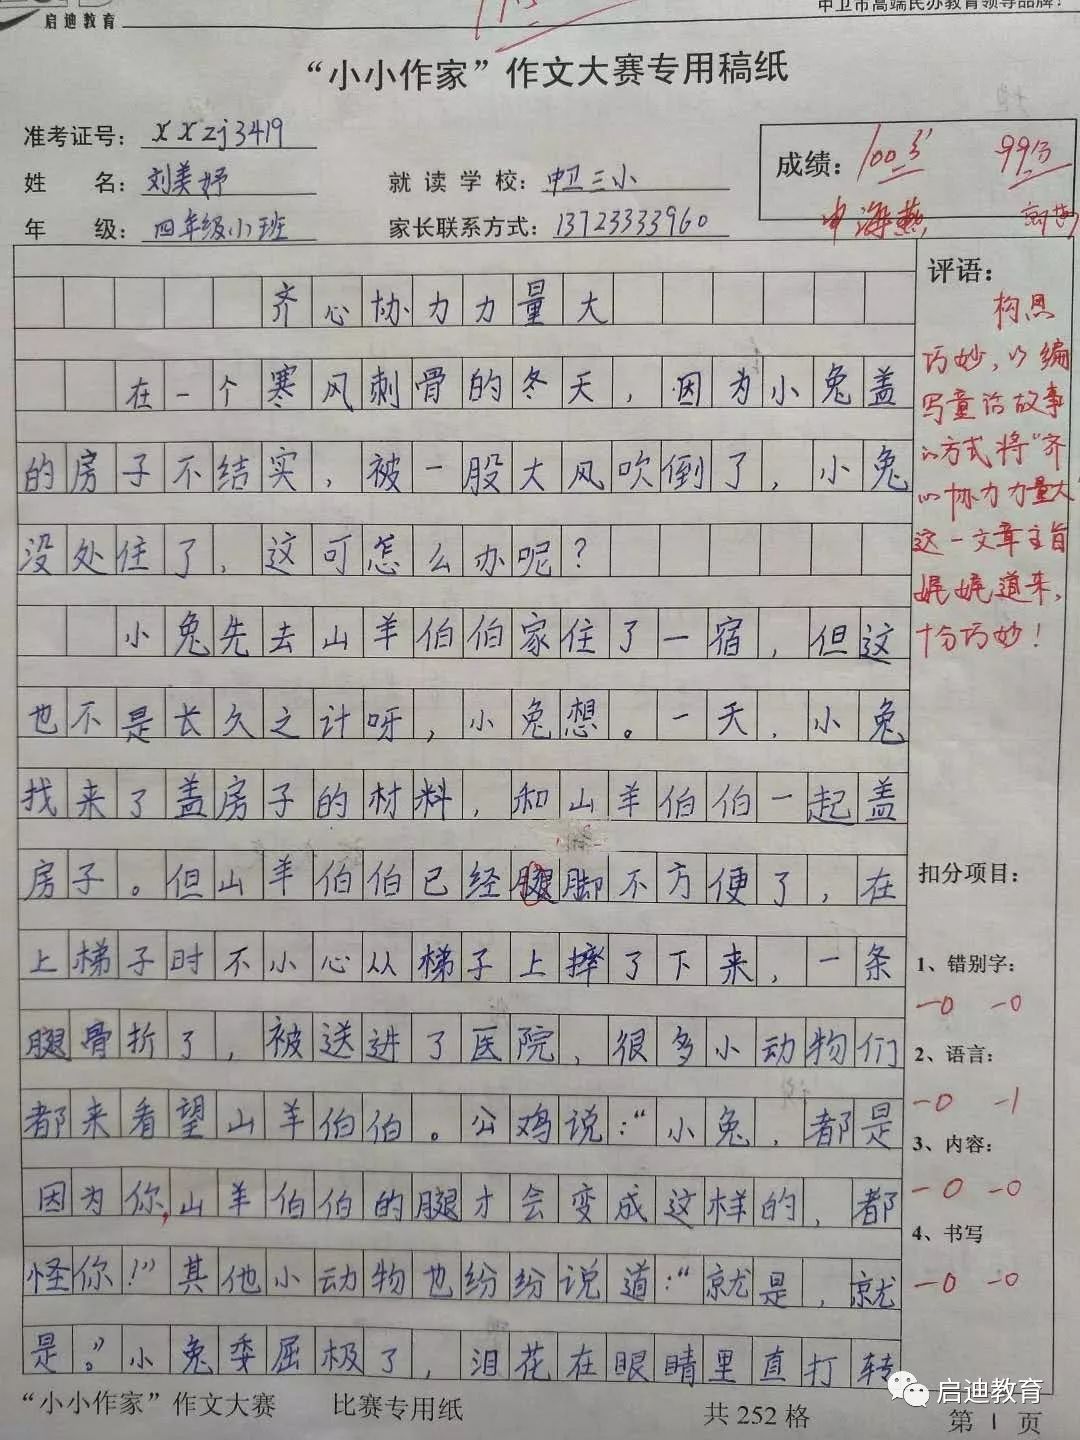 启迪教育
中卫市高端民办教育领导品牌！
“小小作家”作文大赛专用稿纸
准考证号：xxzj3419
姓 名：刘美妤
就读学校：中卫三小
年 级：四年级小班
家长联系方式：13723333960
成绩：100分 99分
申海燕
齐心协力力量大
在一个寒风刺骨的冬天，因为小兔盖
的房子不结实，被一股大风吹倒了，小兔
没处住了，这可怎么办呢？
小兔先去山羊伯伯家住了一宿，但这
也不是长久之计呀，小兔想。一天，小兔
找来了盖房子的材料，和山羊伯伯一起盖
房子。但山羊伯伯已经腿脚不方便了，在
上梯子时不小心从梯子上摔了下来，一条
腿骨折了，被送进了医院，很多小动物们
都来看望山羊伯伯。公鸡说：“小兔，都是
因为你，山羊伯伯的腿才会变成这样的，都
怪你！”其他小动物也纷纷说道：“就是，就
是。”小兔委屈极了，泪花在眼睛里直打转
评语：
构思
巧妙，以编
写童话故事
的方式将“齐
心协力力量大
这一文章主旨
娓娓道来，
十分巧妙！
扣分项目：
1、错别字：
-0 -0
2、语言：
-0 -1
3、内容：
-0 -0
4、书写
-0 -0
“小小作家”作文大赛 比赛专用纸 共252格 第1页
启迪教育